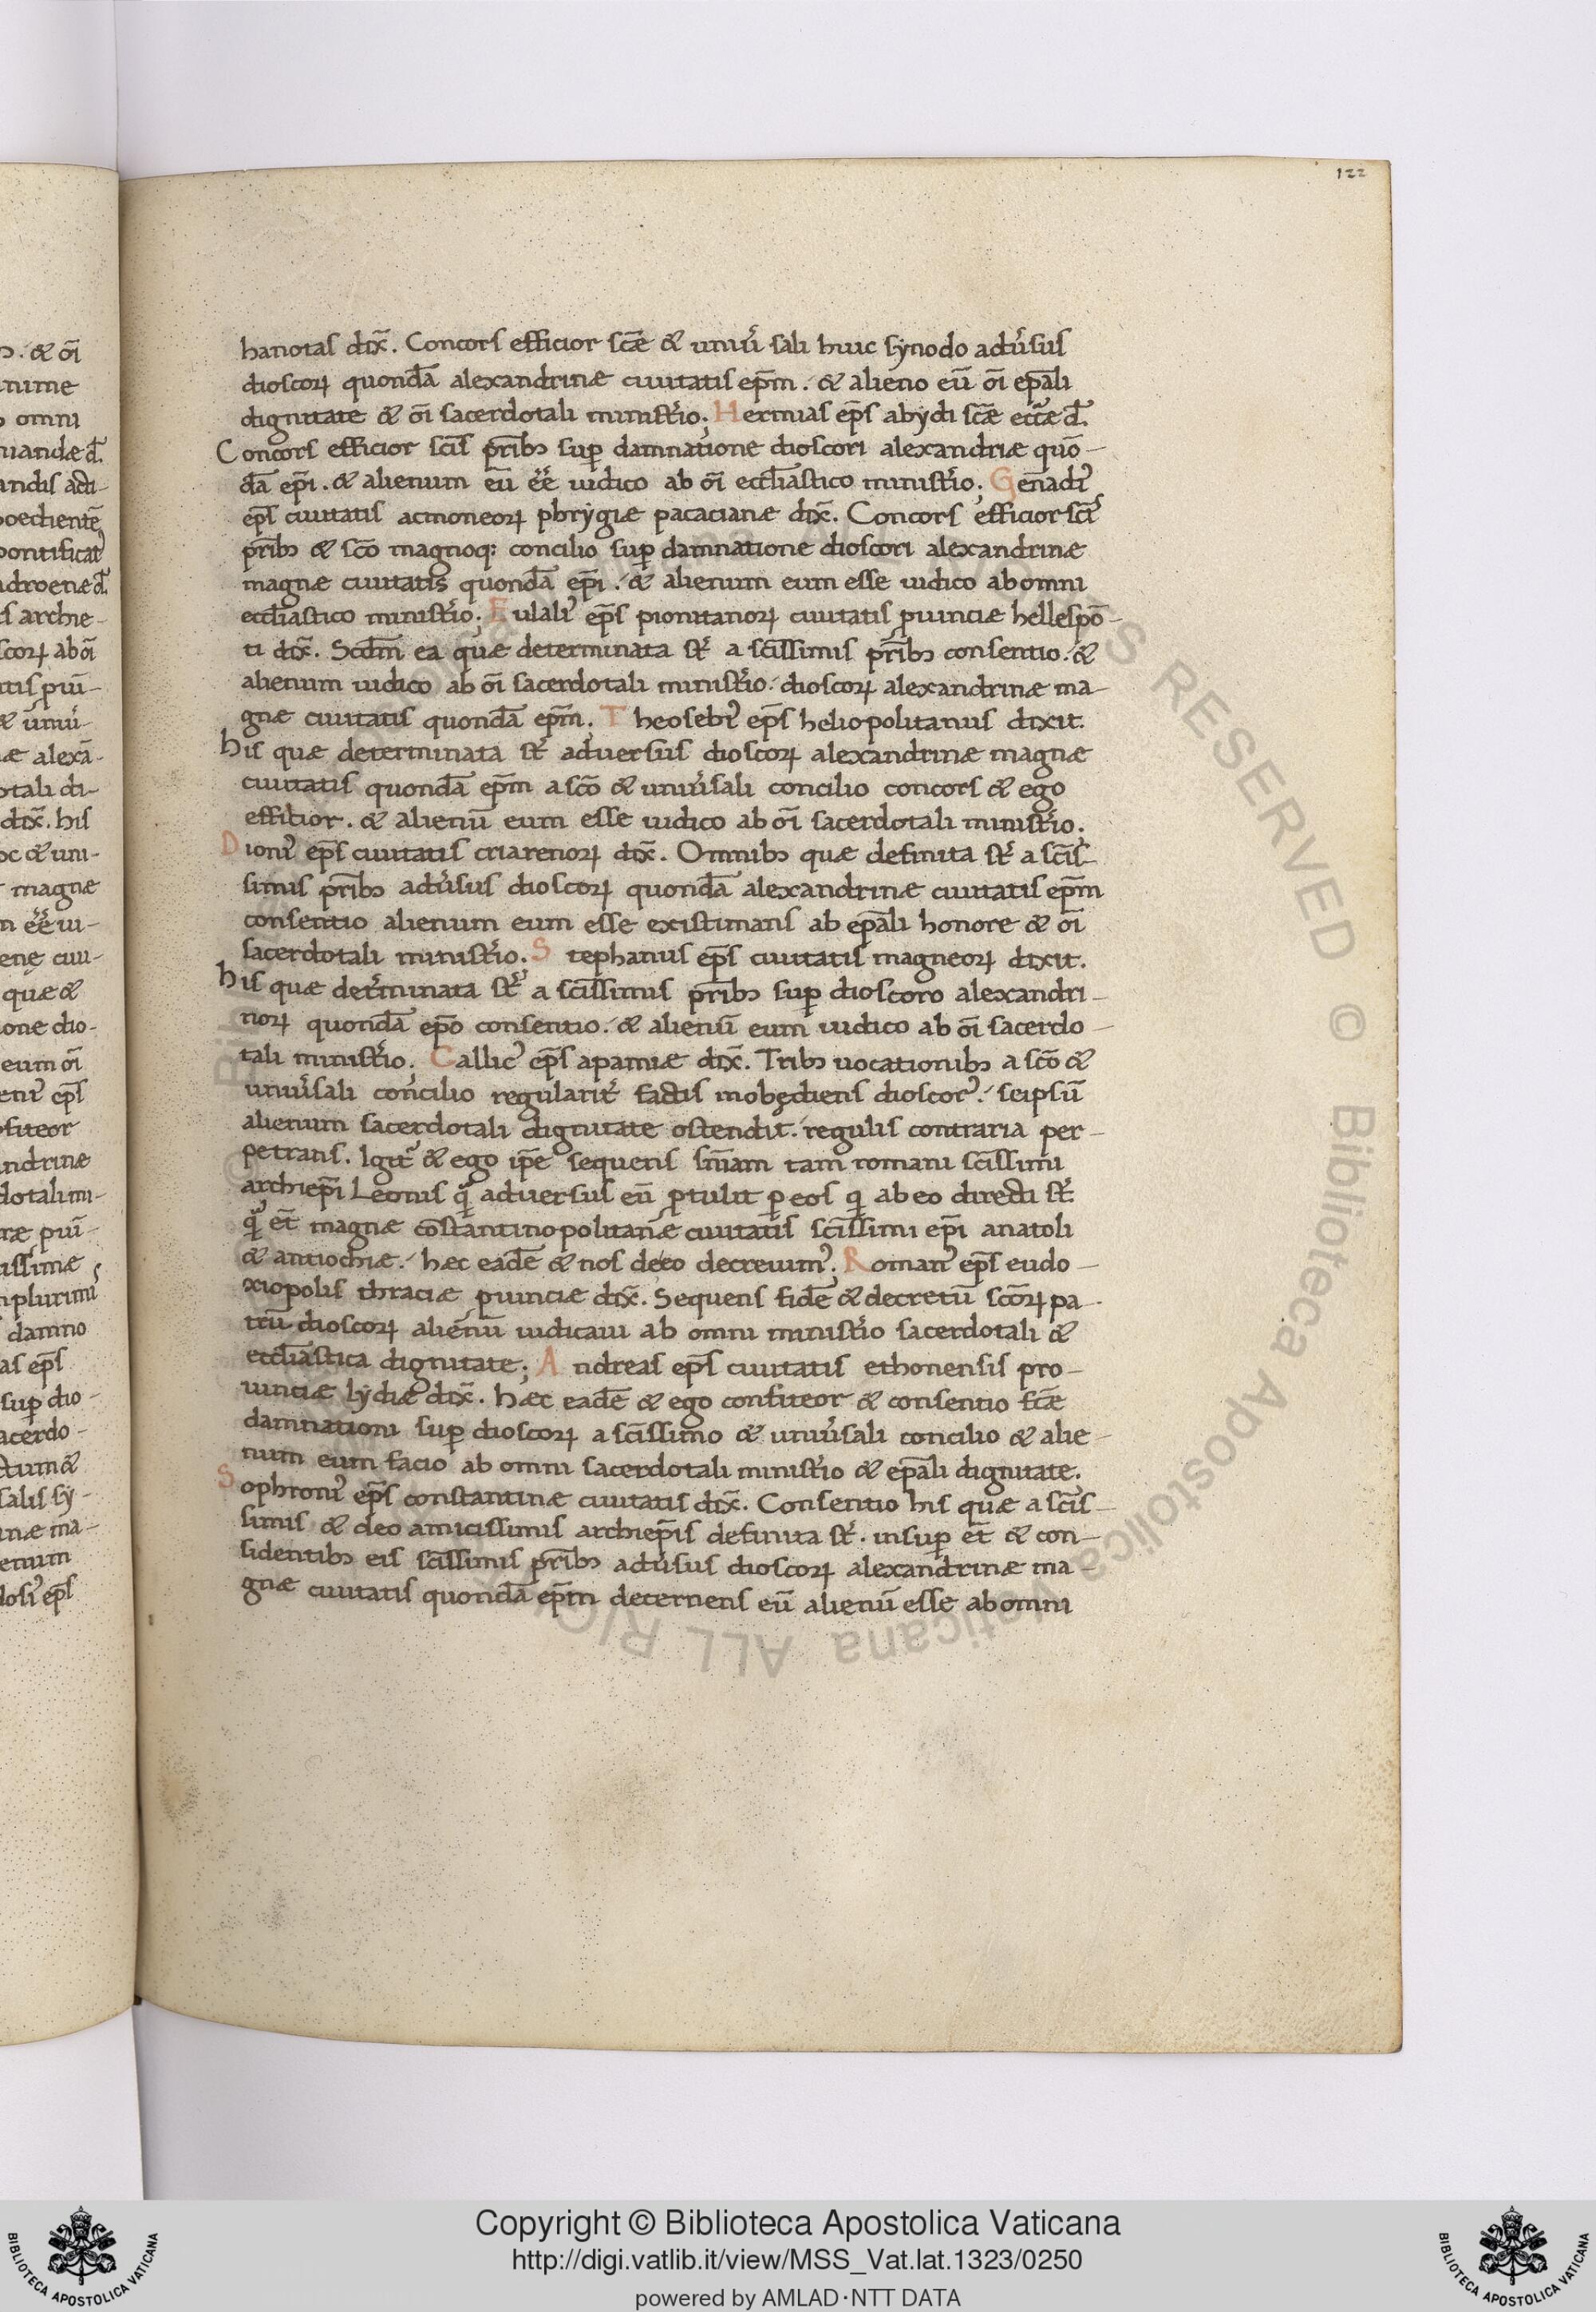 122
hanotas dix̄. Concors efficior sc̄æ & uniũsali huic synodo adũsus
dioscoꝝ quondā alexandrinæ ciuitatis ep̄m. & alieno eū om̄i epāli
dignitate & om̄i sacerdotali minist̃io; Hermias ep̄s abydi sc̄æ ecc̄æ d̄.
Concors efficior sc̄is prīb; suꝑ damnatione dioscori alexandriæ quō-
dā ep̄i. & alienum eū ēē iudico ab ōi eccl̄iastico minist̃io; Genadiꝰ
ep̄s ciuitatis acmoneoꝝ phrygiæ pacacianæ dix̄. Concors efficior sc̄is
prīb; & sc̄o magnoq; concilio suꝑ damnatione dioscori alexandrinæ
magnæ ciuitatis quondā ep̄i. & alienum eum esse iudico ab omni
eccl̄iastico minist̃io; Eulaliꝰ ep̄s pionitanoꝝ ciuitatis ꝓuinciæ hellespō-
ti dix̄. Scd̄m ea quæ determinata st̄ a sc̄issimis prīb; consentio. &
alienum iudico ab ōi sacerdotali minist̃io. dioscoꝝ alexandrinæ ma-
gnæ ciuitatis quondā ep̄m. Theosebiꝰ ep̄s heliopolitanus dixit.
his quæ determinata st̄ aduersus dioscoꝝ alexandrinæ magnæ
ciuitatis quondā ep̄m a sc̄o & uniũsali concilio concors & ego
efficior. & alienū eum esse iudico ab ōi sacerdotali minist̃io;
Dioniꝰ ep̄s ciuitatis criarenoꝝ dix̄. Omnib; quæ definita st̄ a sc̄is-
simis prīb; adũsus dioscoꝝ quondā alexandrinæ ciuitatis ep̄m
consentio alienum eum esse existimans ab epāli honore & ōi
sacerdotali minist̃io. Stephanus ep̄s ciuitatis magneoꝝ dixit.
his quæ det̃minata st̄ a sc̄issimis prīb; suꝑ dioscoro alexandri-
noꝝ quondā ep̄o consentio. & alienū eum iudico ab ōi sacerdo-
tali minist̃io; Callicꝰ ep̄s apamiæ dix̄. Trib; uocationib; a sc̄o &
uniũsali concilio regularit̃ factis inobędiens dioscorꝰ. seipsū
alienum sacerdotali dignitate ostendit. regulis contraria per-
petrans. Igit̃ & ego ip̄e sequens sn̄iam tam romani sc̄issimi
archiep̄i Leonis q̄ aduersus eū ꝓtulit ꝑ eos q̄ ab eo directi st̄.
q̄ et̄ magnæ cōstantinopolitanæ ciuitatis sc̄issimi ep̄i anatoli
& antiochiæ. hæc eadē & nos de eo decreuimꝰ; Romanꝰ ep̄s eudo-
xiopolis thraciæ ꝓuinciæ dix̄. Sequens fidē & decretū sc̄oꝝ pa-
trū dioscoꝝ alienū iudicaui ab omni minist̃io sacerdotali &
eccl̄iastica dignitate; Andreas ep̄s ciuitatis ethonensis pro-
uinciæ lydiæ dix̄. hæc eadē & ego confiteor & consentio fc̄æ
damnationi suꝑ dioscoꝝ a sc̄issimo & uniũsali concilio & alie-
num eum facio ab omni sacerdotali minist̃io & epāli dignitate.
Sophroniꝰ ep̄s constantinæ ciuitatis dix̄. Consentio his quæ a sc̄is-
simis & deo amicissimis archiep̄is definita st̄. insuꝑ et̄ & con-
sidentib; eis sc̄issimis prīb; adũsus dioscoꝝ alexandrinæ ma-
gnæ ciuitatis quondā ep̄m decernens eū alienū esse ab omni
Copyright © Biblioteca Apostolica Vaticana
http://digi.vatlib.it/view/MSS_Vat.lat.1323/0250
powered by AMLAD·NTT DATA
BIBLIOTECA APOSTOLICA VATICANA
BIBLIOTECA APOSTOLICA VATICANA